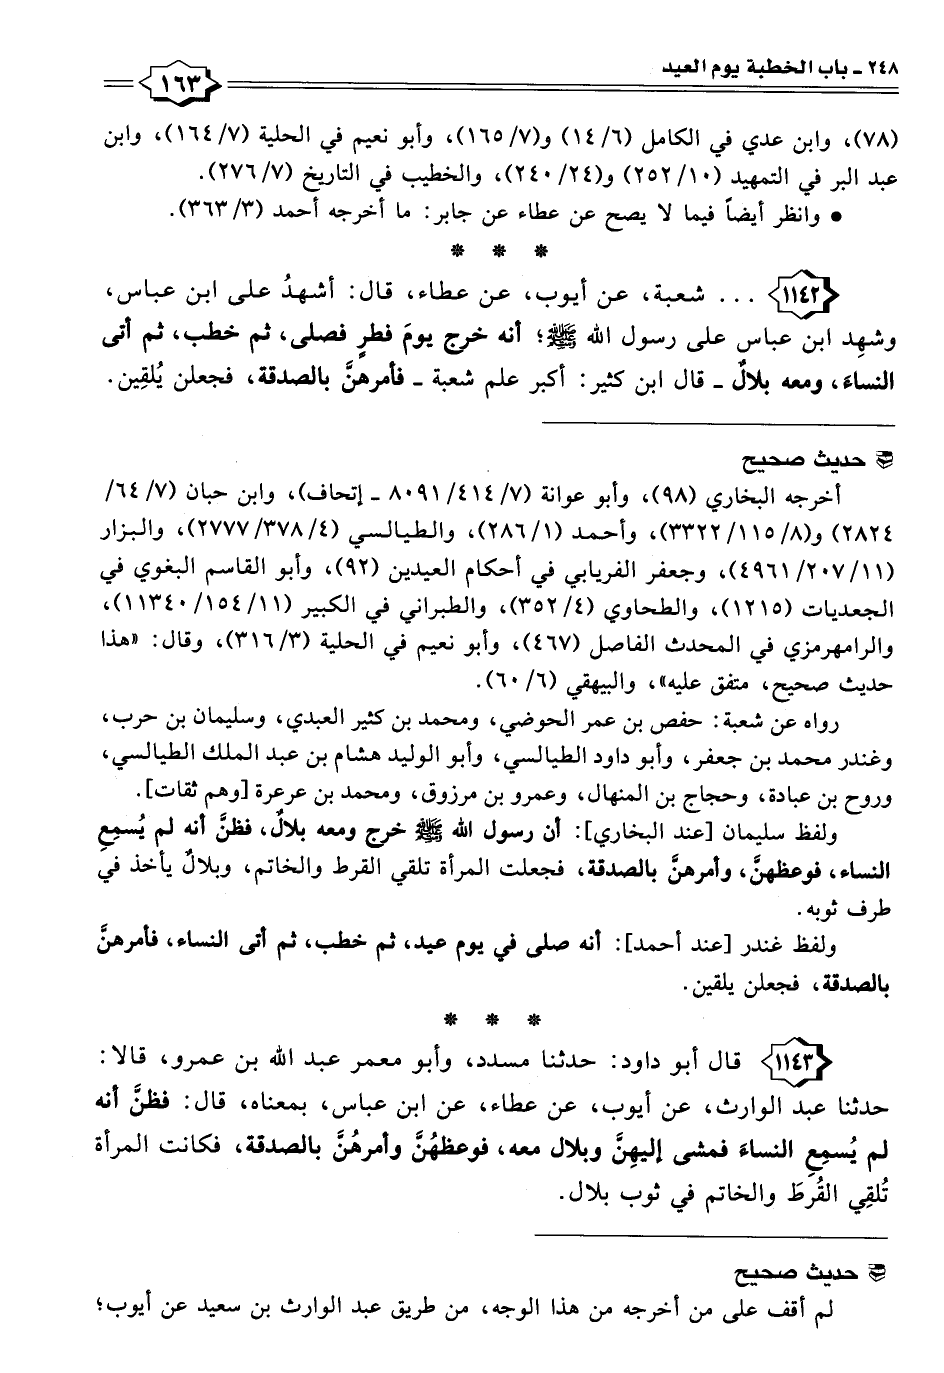 ٢٤٨ ـ باب الخطبة يوم العيد
١٦٣
(٧٨)، وابن عدي في الكامل (١٤/٦) و(١٦٥/٧)، وأبو نعيم في الحلية (١٦٤/٧)، وابن
عبد البر في التمهيد (٢٥٢/١٠) و(٢٤٠/٢٤)، والخطيب في التاريخ (٢٧٦/٧).
• وانظر أيضاً فيما لا يصح عن عطاء عن جابر: ما أخرجه أحمد (٣٦٣/٣).
* * *
١١٤٢ ... شعبة، عن أيوب، عن عطاء، قال: أشهدُ على ابن عباس،
وشهِد ابن عباس على رسول الله ﷺ؛ أنه خرج يومَ فطرٍ فصلى، ثم خطب، ثم أتى
النساءَ، ومعه بلالٌ ـ قال ابن كثير: أكبر علم شعبة ـ فأمرهنَّ بالصدقة، فجعلن يُلقِين.
حديث صحيح
أخرجه البخاري (٩٨)، وأبو عوانة (٨٠٩١/٤١٤/٧ ـ إتحاف)، وابن حبان (٦٤/٧/
٢٨٢٤) و(٣٣٢٢/١١٥/٨)، وأحمد (٢٨٦/١)، والطيالسي (٢٧٧٧/٣٧٨/٤)، والبزار
(٤٩٦١/٢٠٧/١١)، وجعفر الفريابي في أحكام العيدين (٩٢)، وأبو القاسم البغوي في
الجعديات (١٢١٥)، والطحاوي (٣٥٢/٤)، والطبراني في الكبير (١١٣٤٠/١٥٤/١١)،
والرامهرمزي في المحدث الفاصل (٤٦٧)، وأبو نعيم في الحلية (٣١٦/٣)، وقال: «هذا
حديث صحيح، متفق عليه»، والبيهقي (٦٠/٦).
رواه عن شعبة: حفص بن عمر الحوضي، ومحمد بن كثير العبدي، وسليمان بن حرب،
وغندر محمد بن جعفر، وأبو داود الطيالسي، وأبو الوليد هشام بن عبد الملك الطيالسي،
وروح بن عبادة، وحجاج بن المنهال، وعمرو بن مرزوق، ومحمد بن عرعرة [وهم ثقات].
ولفظ سليمان [عند البخاري]: أن رسول الله ﷺ خرج ومعه بلالٌ، فظنَّ أنه لم يُسمِعِ
النساء، فوعظهنَّ، وأمرهنَّ بالصدقة، فجعلت المرأة تلقي القرط والخاتم، وبلالٌ يأخذ في
طرف ثوبه.
ولفظ غندر [عند أحمد]: أنه صلى في يوم عيد، ثم خطب، ثم أتى النساء، فأمرهنَّ
بالصدقة، فجعلن يلقين.
* * *
١١٤٣ قال أبو داود: حدثنا مسدد، وأبو معمر عبد الله بن عمرو، قالا:
حدثنا عبد الوارث، عن أيوب، عن عطاء، عن ابن عباس، بمعناه، قال: فظنَّ أنه
لم يُسمِعِ النساءَ فمشى إليهِنَّ وبلال معه، فوعظهُنَّ وأمرهُنَّ بالصدقة، فكانت المرأة
تُلقِي القُرطَ والخاتم في ثوب بلال.
حديث صحيح
لم أقف على من أخرجه من هذا الوجه، من طريق عبد الوارث بن سعيد عن أيوب؛